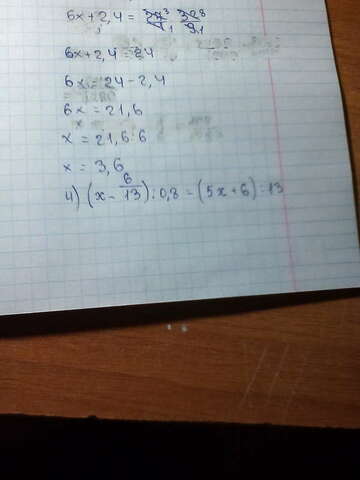 6x+2,4 = 27³/4₁ · 32⁸/9₁
6x+2,4 = 24
6x = 24-2,4
6x = 21,6
x = 21,6:6
x = 3,6
4) (x - 6/13) : 0,8 = (5x+6) : 13